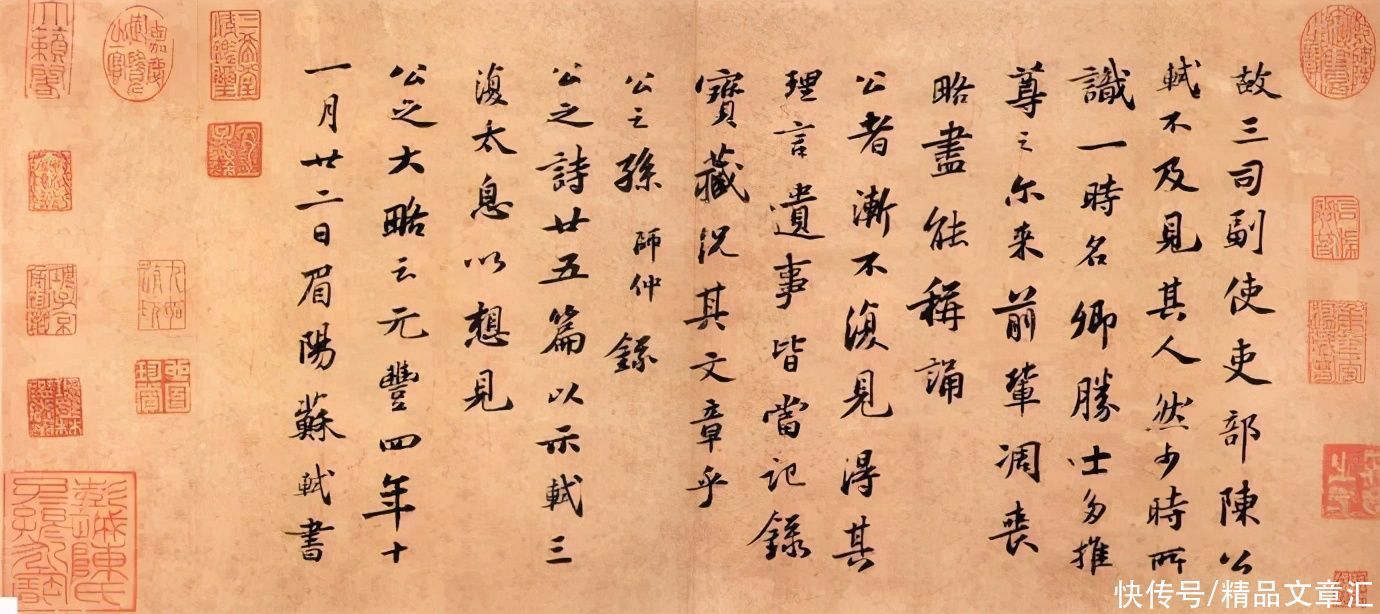 故三司副使吏部陳公
軾不及見其人然少時所
識一時名卿勝士多推
尊之尔来前輩凋喪
略盡能稱誦
公者漸不復見得其
理言遺事皆當記錄
寶藏況其文章乎
公之孫師仲錄
公之詩廿五篇以示軾三
復太息以想見
公之大略云元豐四年十
一月廿二日眉陽蘇軾書
快传号/精品文章汇